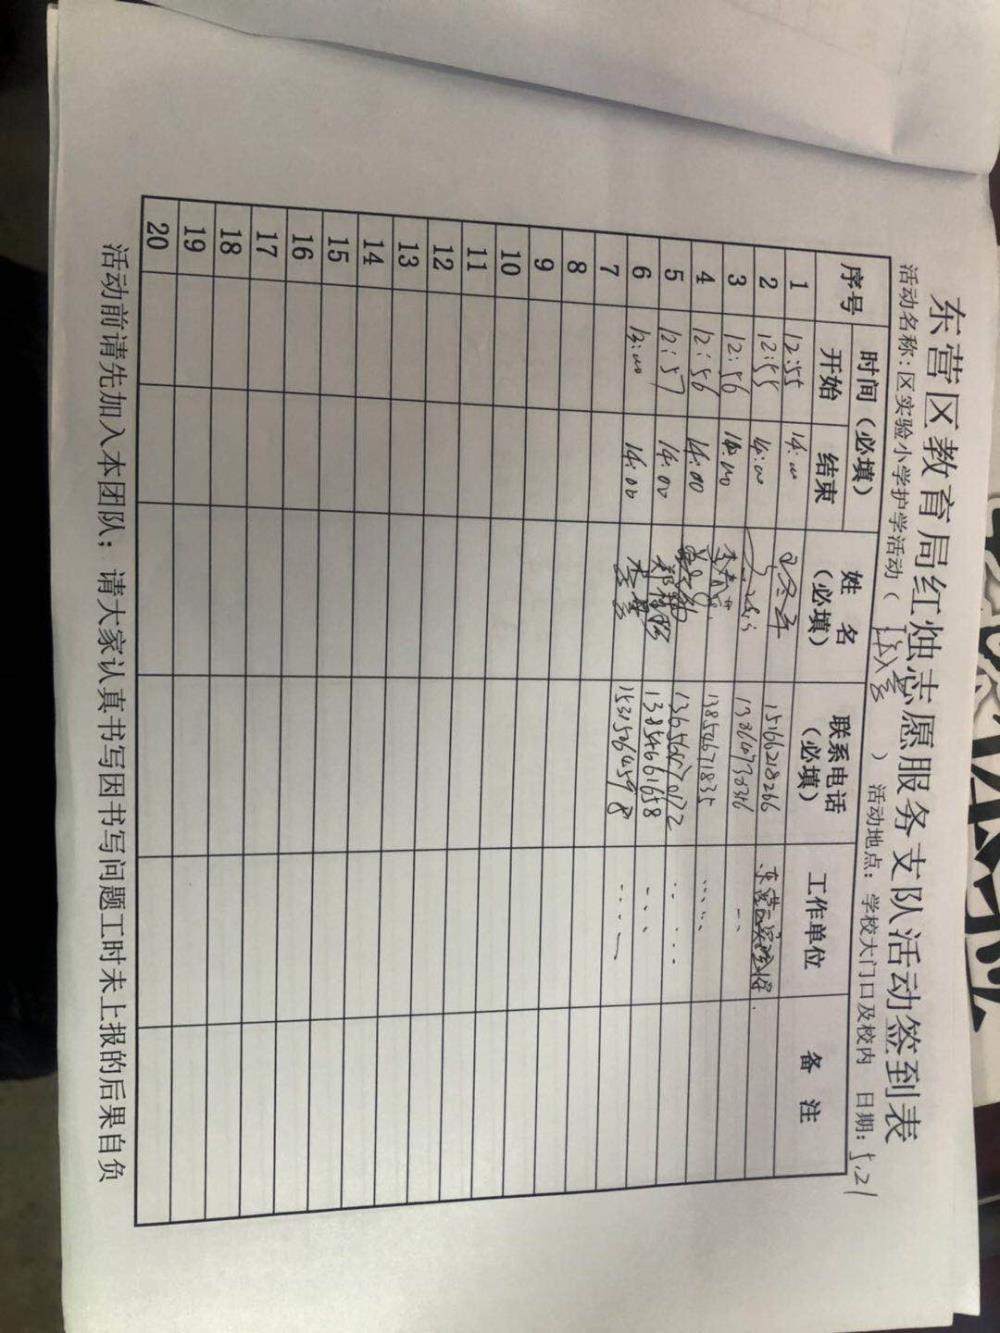 东营区教育局红烛志愿服务支队活动签到表
活动名称：区实验小学护学活动（ ） 活动地点：学校大门口及校内 日期：5.21
序号 时间（必填） 姓 名（必填） 联系电话（必填） 工作单位 备 注
开始 结束
1 12:55 14:00 15166218266
2 12:55 14:00
3 12:56 14:00 13854671835
4 12:56 14:00
5 12:57 14:00 13854661658
6 13:00 14:00
7
8
9
10
11
12
13
14
15
16
17
18
19
20
活动前请先加入本团队；请大家认真书写因书写问题工时未上报的后果自负